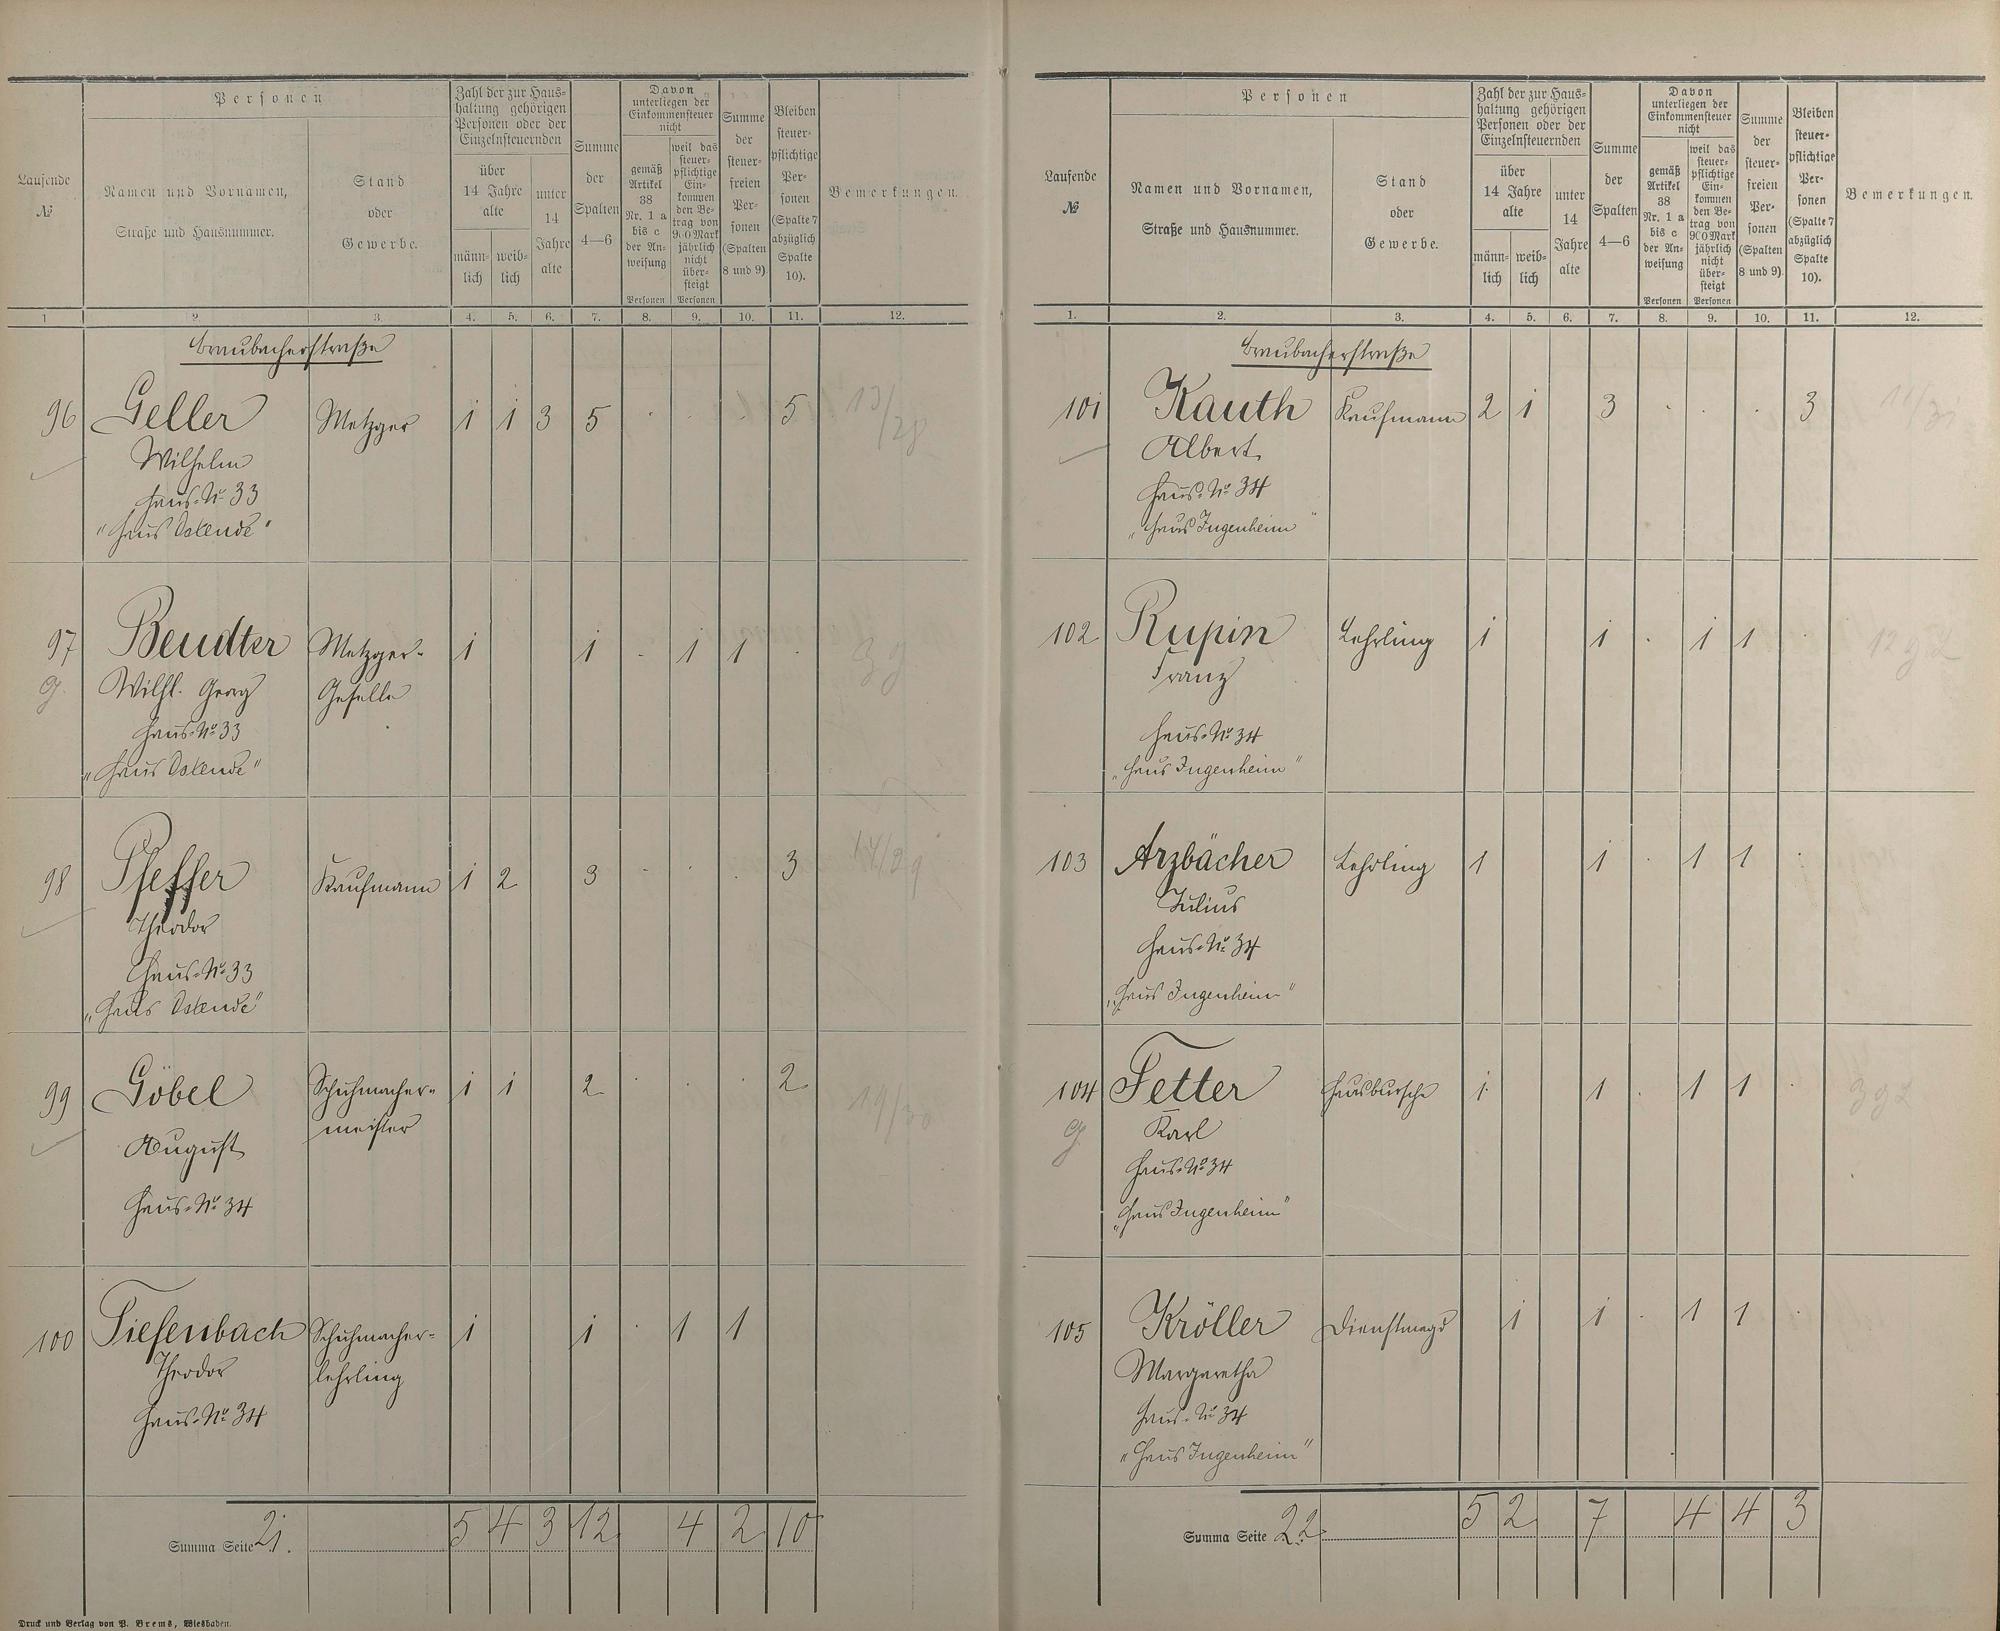 Laufende
№
Personen
Namen und Vornamen,
Straße und Hausnummer.
Stand
oder
Gewerbe.
Zahl der zur Haus-
haltung gehörigen
Personen oder der
Einzelnsteuernden
über
14 Jahre
alte
männ-
lich
weib-
lich
unter
14
Jahre
alte
Summe
der
Spalten
4—6
Davon
unterliegen der
Einkommensteuer
nicht
gemäß
Artikel
38
Nr. 1 a
bis c
der An-
weisung
Personen
weil das
steuer-
pflichtige
Ein-
kommen
den Be-
trag von
900 Mark
jährlich
nicht
über-
steigt
Personen
Summe
der
steuer-
freien
Per-
sonen
(Spalten
8 und 9)
Bleiben
steuer-
pflichtige
Per-
sonen
(Spalte 7
abzüglich
Spalte
10).
Bemerkungen.
1 2. 3. 4. 5. 6. 7. 8. 9. 10. 11. 12.
Braubacherstraße
96 Geller Metzger 1 1 3 5 . . . 5 13/28
Wilhelm
Haus-№ 33
"Haus Ostende"
97 Bendter Metzger- 1 1 . 1 1 .
g. Wilh. Georg Geselle
Haus-№ 33
"Haus Ostende"
98 Pfeffer Kaufmann 1 2 3 . . . 3 14/29
Theodor
Haus-№ 33
"Haus Ostende"
99 Göbel Schuhmacher- 1 1 2 . . . 2 19/30
August meister
Haus-№ 34
100 Tiefenbach Schuhmacher- 1 1 . 1 1
Theodor lehrling
Haus-№ 34
Summa Seite 21. 5 4 3 12 4 2 10
Druck und Verlag von P. Brems, Wiesbaden.
Laufende
№
Personen
Namen und Vornamen,
Straße und Hausnummer.
Stand
oder
Gewerbe.
Zahl der zur Haus-
haltung gehörigen
Personen oder der
Einzelnsteuernden
über
14 Jahre
alte
männ-
lich
weib-
lich
unter
14
Jahre
alte
Summe
der
Spalten
4—6
Davon
unterliegen der
Einkommensteuer
nicht
gemäß
Artikel
38
Nr. 1 a
bis c
der An-
weisung
Personen
weil das
steuer-
pflichtige
Ein-
kommen
den Be-
trag von
900 Mark
jährlich
nicht
über-
steigt
Personen
Summe
der
steuer-
freien
Per-
sonen
(Spalten
8 und 9)
Bleiben
steuer-
pflichtige
Per-
sonen
(Spalte 7
abzüglich
Spalte
10).
Bemerkungen.
1. 2. 3. 4. 5. 6. 7. 8. 9. 10. 11. 12.
Braubacherstraße
101 Kauth Kaufmann 2 1 3 . . . 3 11/31
Albert
Haus-№ 34
"Haus Jugenheim"
102 Rupin Lehrling 1 1 . 1 1 .
Franz
Haus-№ 34
"Haus Jugenheim"
103 Arzbächer Lehrling 1 1 . 1 1 .
Julius
Haus-№ 34
"Haus Jugenheim"
104 Fetter Hausbursche 1 1 . 1 1 .
g. Karl
Haus-№ 34
"Haus Jugenheim"
105 Kröller Dienstmagd 1 1 . 1 1 .
Margaretha
Haus-№ 34
"Haus Jugenheim"
Summa Seite 22. 5 2 7 4 4 3